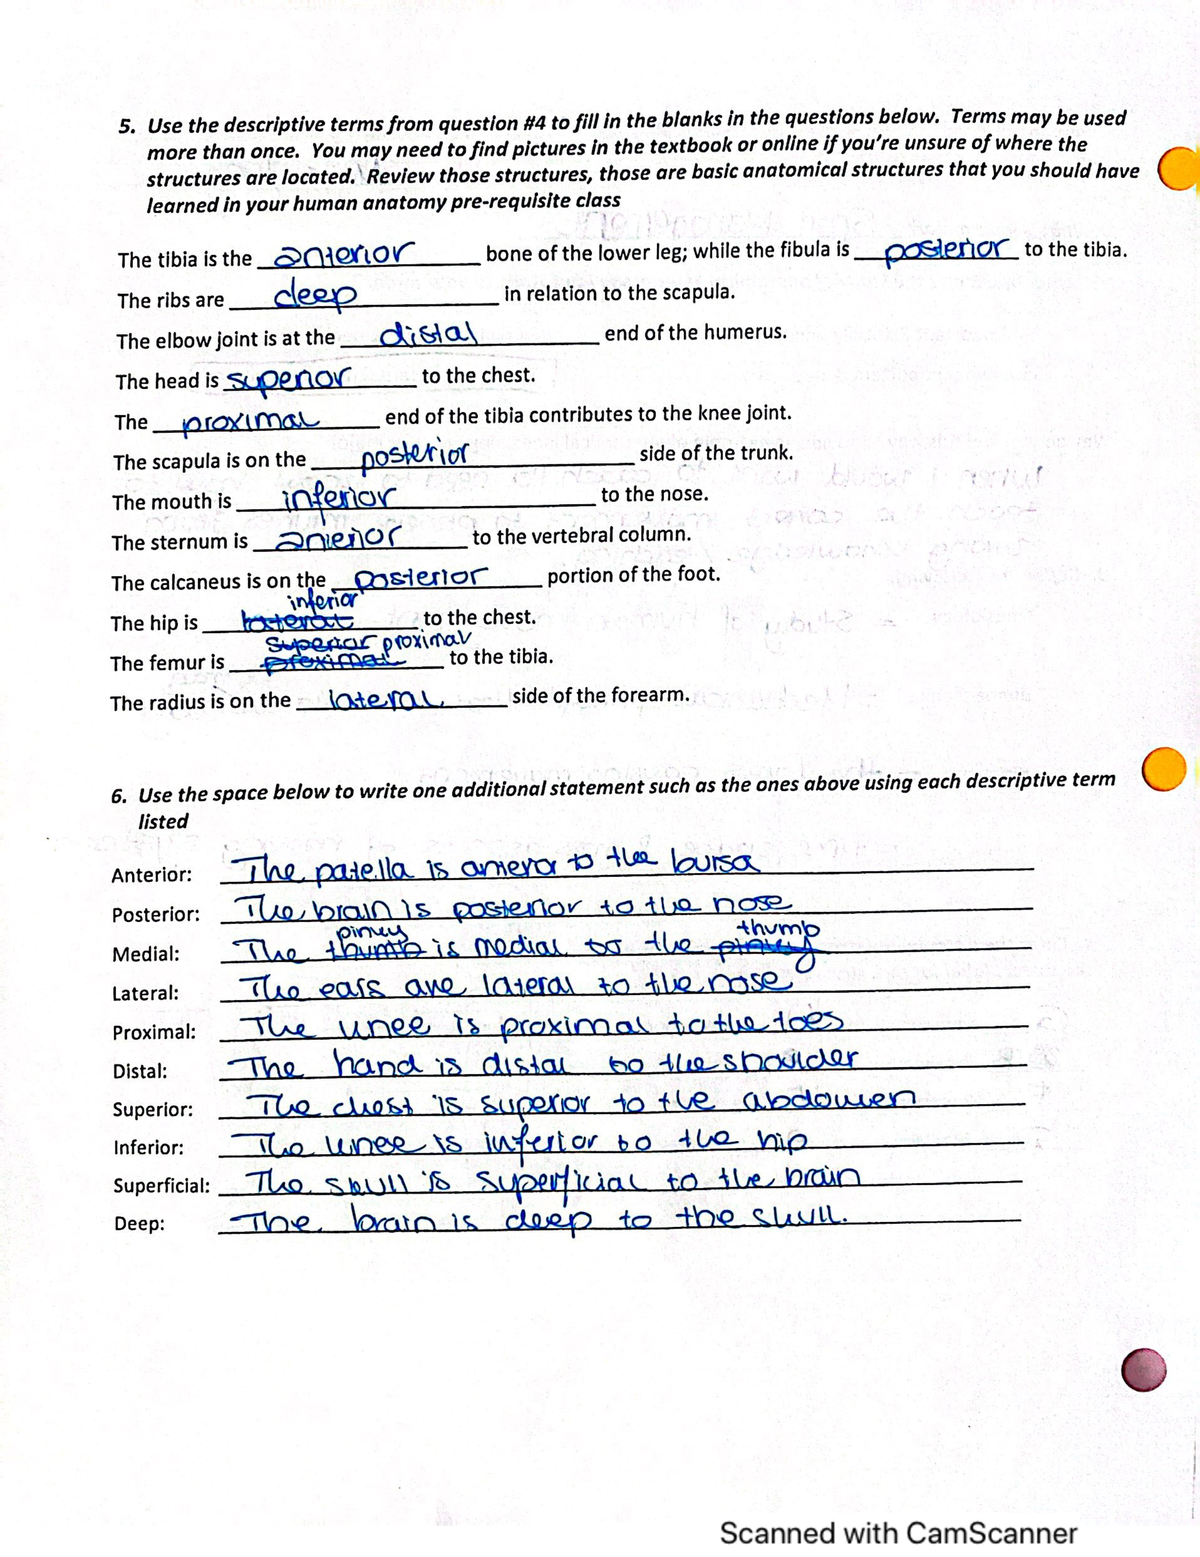 5. Use the descriptive terms from question #4 to fill in the blanks in the questions below. Terms may be used
more than once. You may need to find pictures in the textbook or online if you're unsure of where the
structures are located. Review those structures, those are basic anatomical structures that you should have
learned in your human anatomy pre-requisite class
The tibia is the anterior bone of the lower leg; while the fibula is posterior to the tibia.
The ribs are deep in relation to the scapula.
The elbow joint is at the distal end of the humerus.
The head is superior to the chest.
The proximal end of the tibia contributes to the knee joint.
The scapula is on the posterior side of the trunk.
The mouth is inferior to the nose.
The sternum is anterior to the vertebral column.
The calcaneus is on the posterior portion of the foot.
inferior
The hip is lateral to the chest.
superior proximal
The femur is proximal to the tibia.
The radius is on the lateral side of the forearm.
6. Use the space below to write one additional statement such as the ones above using each descriptive term
listed
Anterior: The patella is anterior to the bursa
Posterior: The brain is posterior to the nose
pinky thumb
Medial: The thumb is medial to the pinky
Lateral: The ears are lateral to the nose
Proximal: The knee is proximal to the toes
Distal: The hand is distal to the shoulder
Superior: The chest is superior to the abdomen
Inferior: The knee is inferior to the hip
Superficial: The skull is superficial to the brain
Deep: The brain is deep to the skull.
Scanned with CamScanner